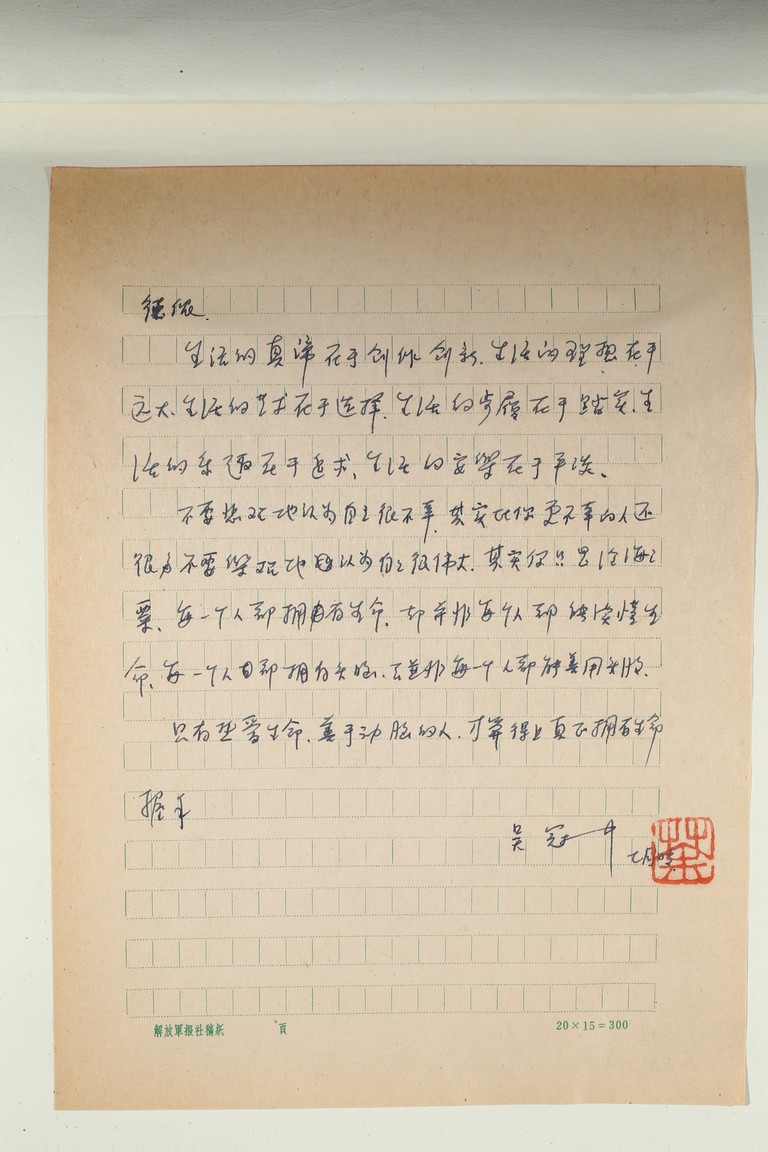 德侬.
生活的真谛在于创作创新.生活的理想在于
远大.生活的艺术在于选择.生活的步履在于踏实.生
活的乐趣在于追求、生活的安乐在于平淡、
不要悲观地认为自己很不幸.其实比你更不幸的人还
很多不要乐观地认为自己很伟大.其实你只是沧海之
粟.每一个人都拥有生命.却并非每个人都能读懂生
命.每一个人都拥有头脑.并非每一个人都能善用头脑.
只有热爱生命.善于动脑的人.才算得上真正拥有生命
握手
吴冠中
七月
解放軍报社稿紙 頁 20×15=300